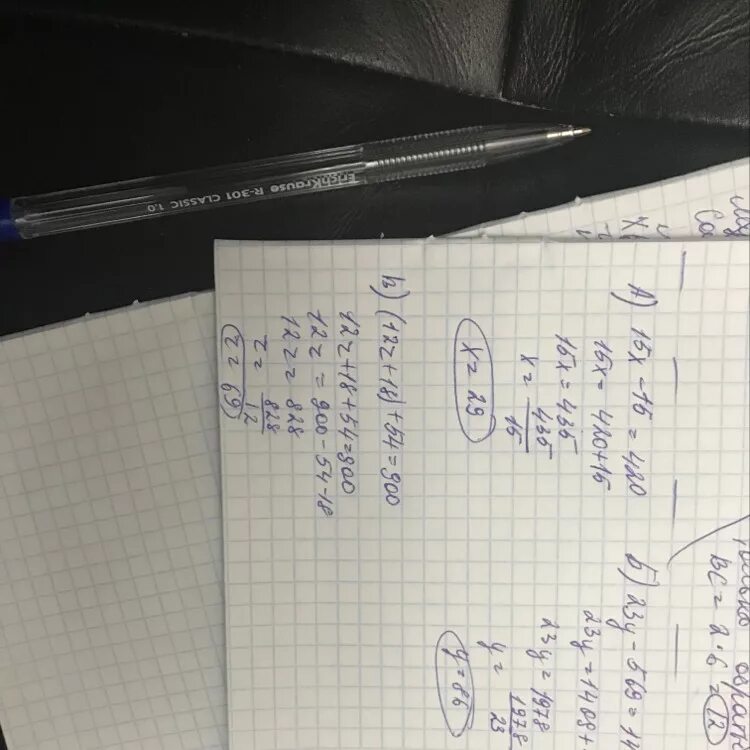 ErichKrause R-301 CLASSIC 1.0
ВС = 2·6 = 12
А) 15x - 15 = 420
15x = 420 + 15
15x = 435
x = 435/15
x = 29
Б) 23y - 569 = 14
23y = 1409 +
23y = 1978
y = 1978/23
y = 86
в) (12z + 18) + 54 = 900
12z + 18 + 54 = 900
12z = 900 - 54 - 18
12z = 828
z = 828/12
z = 69